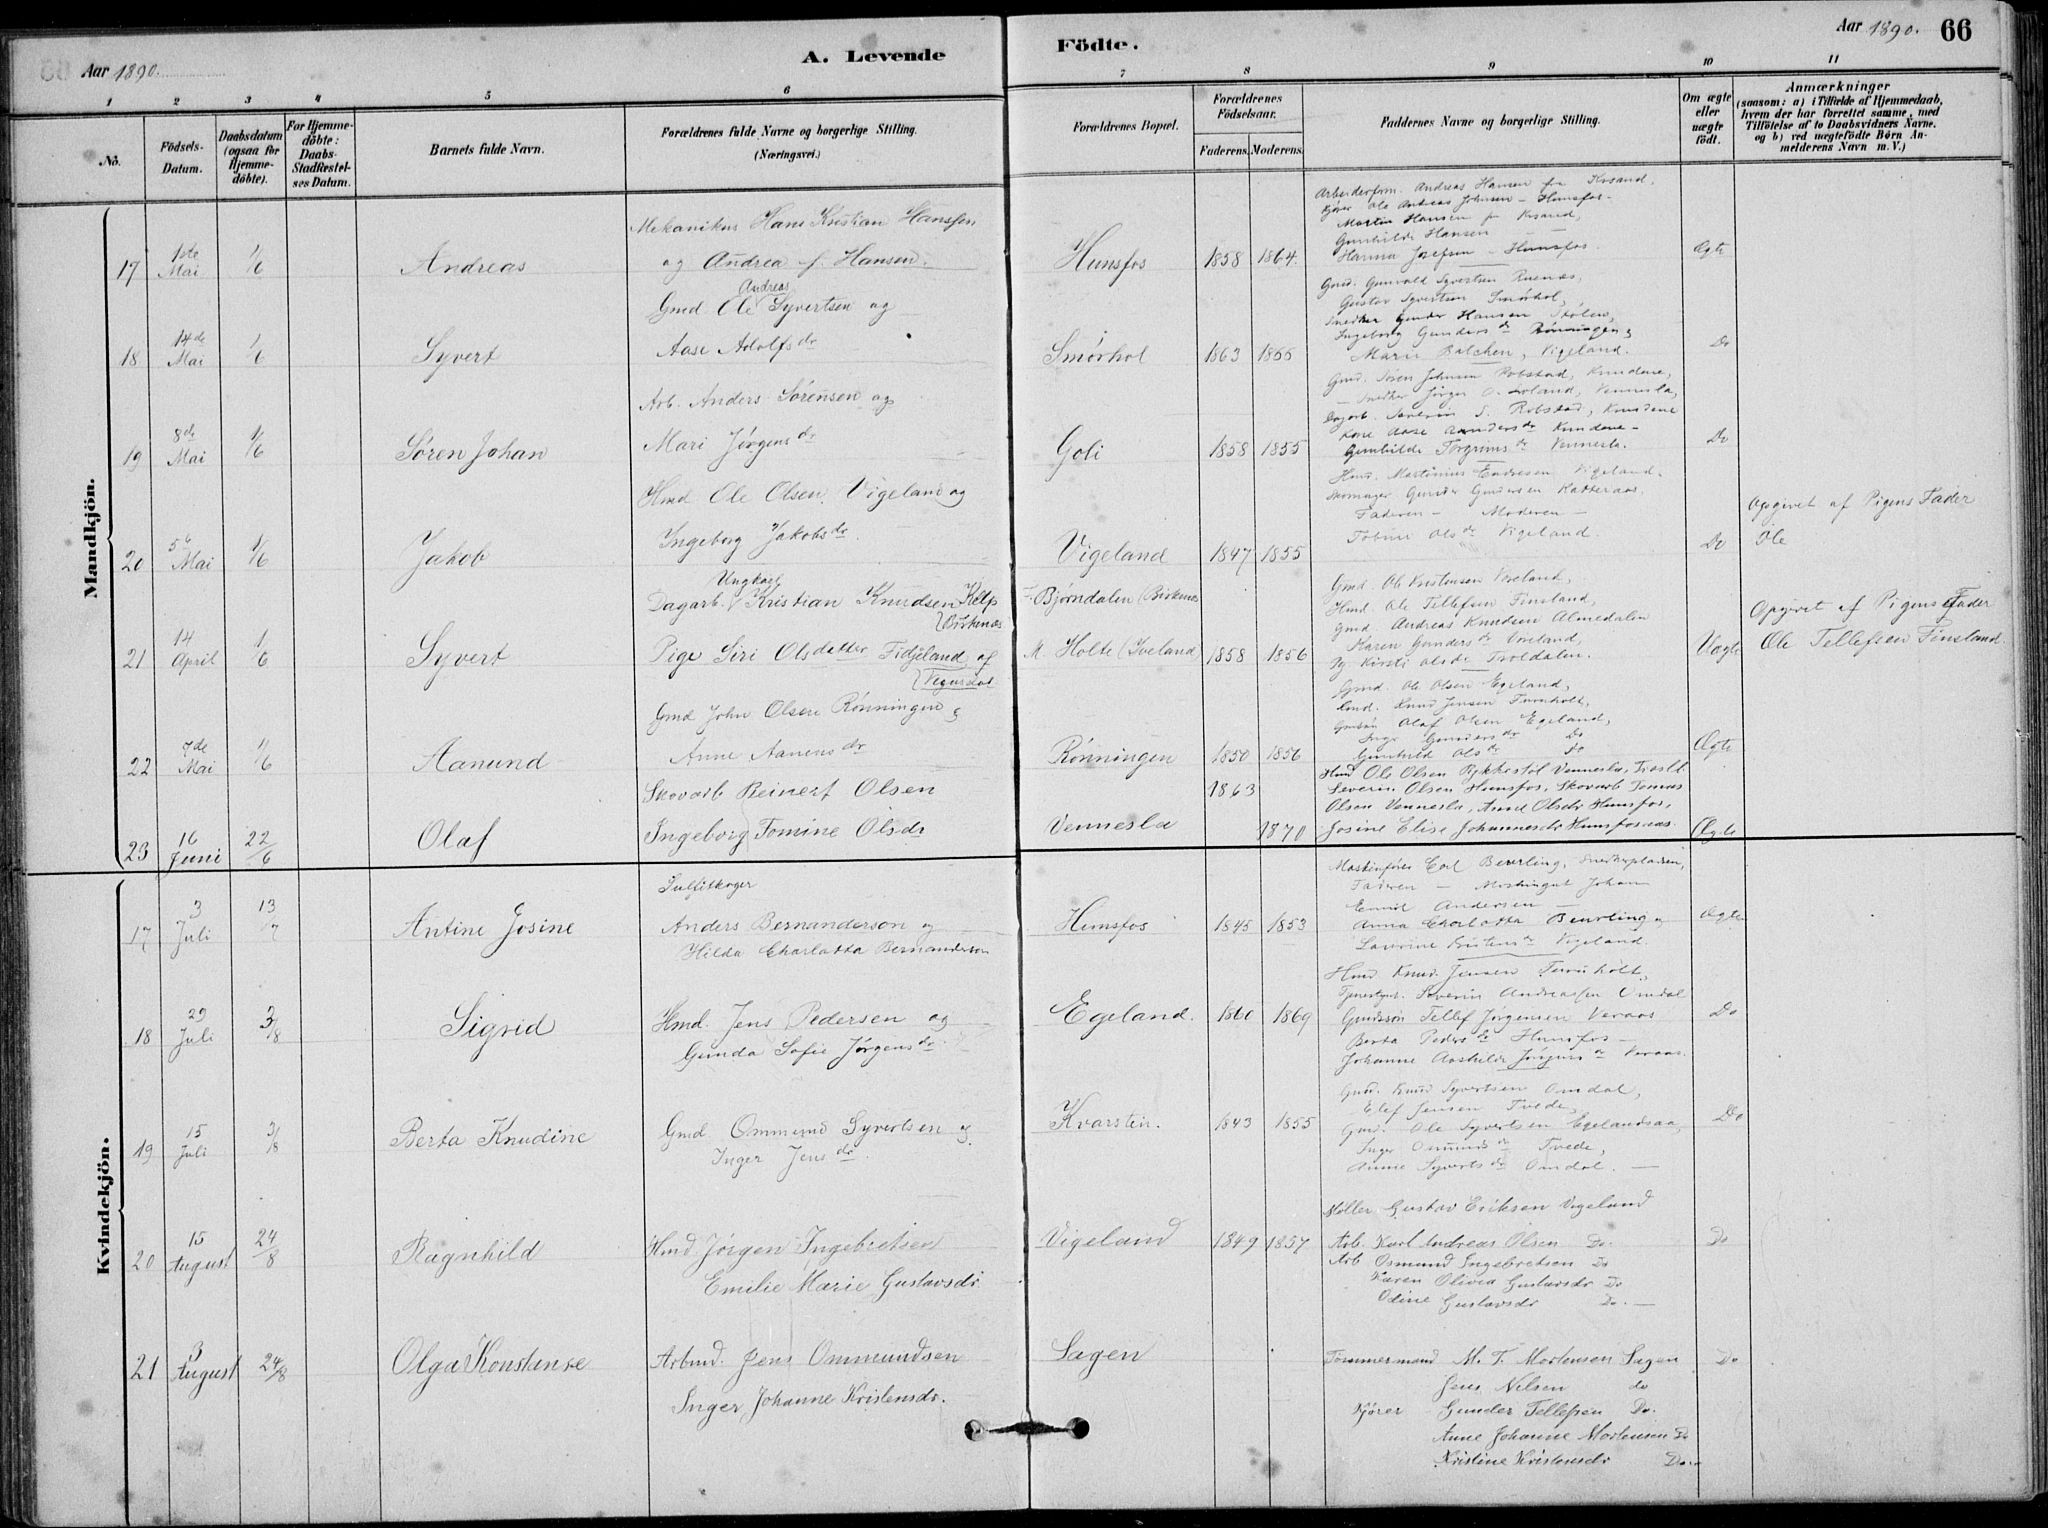 Aar 1890.
A. Levende
Födte.
Aar 1890. 66
1 2 3 4 5 6 7 8 9 10 11
No.
Födsels-Datum.
Daabsdatum (ogsaa for Hjemme-döbte).
For Hjemme-döbte: Daabs-Stadfæstel-ses Datum.
Barnets fulde Navn.
Forældrenes fulde Navne og borgerlige Stilling.
(Næringsvei.)
Forældrenes Bopæl.
Forældrenes Födselsaar.
Faderens. Moderens.
Faddernes Navne og borgerlige Stilling.
Om ægte eller uægte födt.
Anmærkninger
(saasom: a) i Tilfælde af Hjemmedaab, hvem der har forrettet samme, med Tilföielse af to Daabsvidners Navne. og b) ved uægtefödte Börn An-melderens Navn m. V.)
Mandkjön.
17 1ste Mai 1/6 Andreas
Mekanikus Hans Kristian Hansen
og Andrea f. Hansen.
Hunsfos 1858 1864.
Arbeiderform. Andreas Hansen fra Krsand,
Kjører Ole Andreas Johnsen – Hunsfos –
Martin Hansen fr Krsand,
Gunhilde Hansen –
Hanna Josefsen – Hunsfos.
Ægte
18 14de Mai 1/6 Syvert
Gmd Ole Andreas Syvertsen og
Aase Adolfsdr
Smørhol 1863 1866
Gmd. Gunvald Syvertsen Ruenæs,
Gustav Syvertsen Smørhol,
Snedker Gunder Hansen
Ingeborg Gundersdr Rønningen
Marie Balchen, Vigeland.
Do
19 8de Mai 1/6 Søren Johan
Arb. Anders Sørensen og
Mari Jørgensdr
Goli 1858 1855
Gmd. Søren Johnsen Robstad,
– Snedker Jørgen O. Vennesla,
Dagarb. Severin S. Robstad,
Kone Aase Andersdr
Gunhilde Torgrimsdr Vennesla.
Do
20 5te Mai 1/6 Jakob
Hmd Ole Olsen Vigeland og
Ingeborg Jakobsdr.
Vigeland 1847 1855
Hmd. Martinius Endresen Vigeland.
Skomager Gunder Gundersen Katteraas,
Faderen – Moderen –
Tobine Olsdr Vigeland.
Do
Opgivet af Pigens Fader
Ole
21 14 April 1/6 Syvert
Dagarb. Ungkarl Kristian Knudsen Kelp
Birkenæs
Pige Siri Olsdetter Fidjeland af
Vegusdal
F. Bjørndalen (Birkenæs
M. Holte (Iveland) 1858 1856
Gmd. Ole Kristensen Vreland,
Hmd. Ole Tellefsen Finsland,
Gmd. Andreas Knudsen Almedalen
Karen Gundersdr Vreland,
Pg Kirsti Olsdr Troldalen.
Uægte
Opgivet af Pigens Fader
Ole Tellefsen Finsland.
22 7de Mai 1/6 Aanund
Gmd John Olsen Rønningen &
Anne Aanensdr
Rønningen 1850 1856
Gmd. Ole Olsen Egeland,
Gmd. Knud Jensen Furuholt,
Gmdsøn Olaf Olsen Egeland,
Inger Gundersdr Do
Gunhild Olsdr Do
Ægte
23 16 Juni 22/6 Olaf
Skovarb Beinert Olsen
Ingeborg Tomine Olsdr
Vennesla 1863 1870
Hmd Ole Olsen Vennesla,
Severin Olsen Hunsfos, Skovarb Tomas
Olsen Vennesla, Anne Olsdr Hunsfos,
Josine Elise Johannesdr Hunsfosaas.
Ægte
Kvindekjön.
17 3 Juli 13/7 Antine Josine
Sulfitkoger
Anders Bernanderson og
Hilda Charlatta Bernanderson
Hunsfos 1845 1853
Maskinfører Carl Beurling, Snedkerpladsen,
Faderen – Johan
Emil Andersen –
Anna Charlotta Beurling
Lavrine Kristensdr Vigeland.
Ægte
18 29 Juli 3/8 Sigrid
Hmd. Jens Pedersen og
Gunda Sofie Jørgensdr.
Egeland. 1860 1869
Hmd Knud Jensen Furuholt,
Tjenestgut. Severin Andreassen Omdal
Gmdssøn Tellef Jørgensen Veraas
Berta Pedersdr Hunsfos –
Johanne Aashilde Jørgensdr Veraas.
Do
19 15 Juli 3/8 Berta Knudine
Gmd Ommund Syvertsen &
Inger Jensdr.
Kvarstein. 1843 1855
Gmd. Knud Syvertsen Omdal,
Elef Jensen Tvede,
Gmd. Ole Syvertsen Egelandsaa,
Inger Omundsdr Tvede,
Anne Syvertsdr Omdal. –
Do
20 15 August 24/8 Ragnhild
Hmd Jørgen Ingebretsen
Emilie Marie Gustavsdr
Vigeland 1849 1857
Møller Gustav Eriksen Vigeland
Arb. Karl Andreas Olsen Do.
Arb Osmund Ingebretsen Do
Karen Olivia Gustavsdr Do
Odine Gustavsdr Do. –
Do
21 3 August 24/8 Olga Konstanse
Arbmd. Jens Ommundsen
Inger Johanne Kristensdr.
Sagen
Tømmermand M. T. Mortensen Sagen
Jens Nilsen do
Kjører Gunder Tellefsen Do.
Anne Johanne Mortensen Do
Kristine Kristensdr Do.
Do